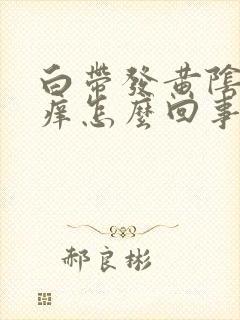 白帶發黃陰
癢怎麼回事
郝良彬